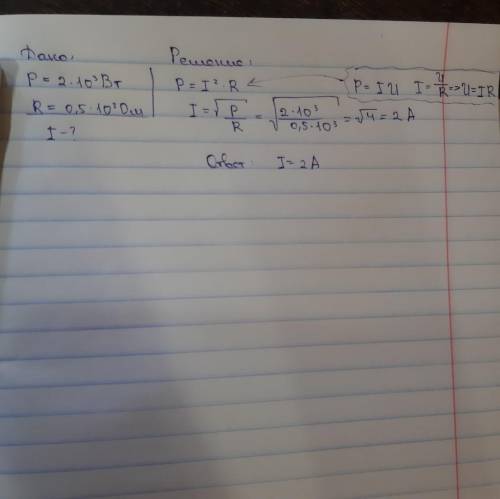 Дано:
P = 2·10³ Вт
R = 0,5·10³ Ом
I - ?
Решение:
P = I² · R
P = I U I = U/R => U = IR
I = √(P/R) = √(2·10³/0,5·10³) = √4 = 2 A
Ответ: I = 2A